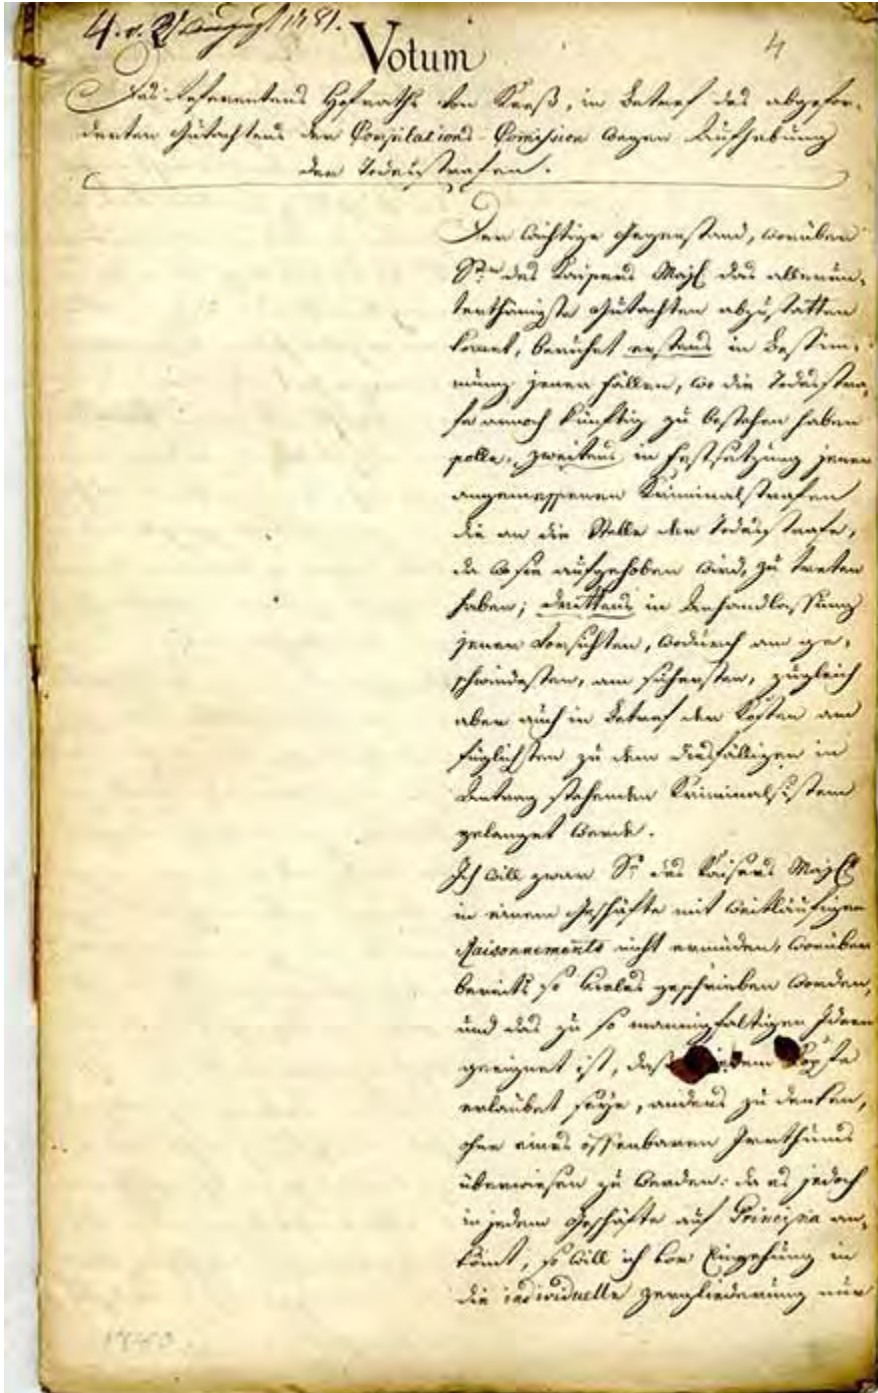 4. v. 21 August 1781.
4
Votum
Des Referentens Hofraths von Keeß, in Betref des abgefor-
derten Gutachtens der Compilations-Comission wegen Aufhebung
der Todesstrafen.
Der wichtige Gegenstand, worüber
Sr des Kaisers Majt das allerun-
terthänigste Gutachten abzustatten
komt, beruhet erstens in Bestim-
mung jener Fällen, wo die Todesstra-
fe annoch künftig zu bestehen haben
solle, zweitens in Festsetzung jener
angemessenen Kriminalstrafen
die an die Stelle der Todesstrafe,
da wo sie aufgehoben wird, zu tretten
haben; drittens in Anhandlassung
jener Vorsichten, wodurch am ge-
schwindesten, am sichersten, zugleich
aber auch in Betref der Kosten am
füglichsten zu dem diesfälligen in
Antrag stehenden Kriminalsistem
gelanget werde.
Ich will zwar Sr des Kaisers Majt
in einem Geschäfte mit weitläufigen
Raisonnements nicht ermüden, worüber
bereits so vieles geschrieben worden,
und das zu so mannigfaltigen Ideen
geeignet ist, daß jedem Kopfe
erlaubet seye, anders zu denken,
ohne eines offenbaren Irrthums
überwiesen zu werden: da es jedoch
in jedem Geschäfte auf Principia an-
kömt, so will ich vor Eingehung in
die individuelle Zergliederung nur